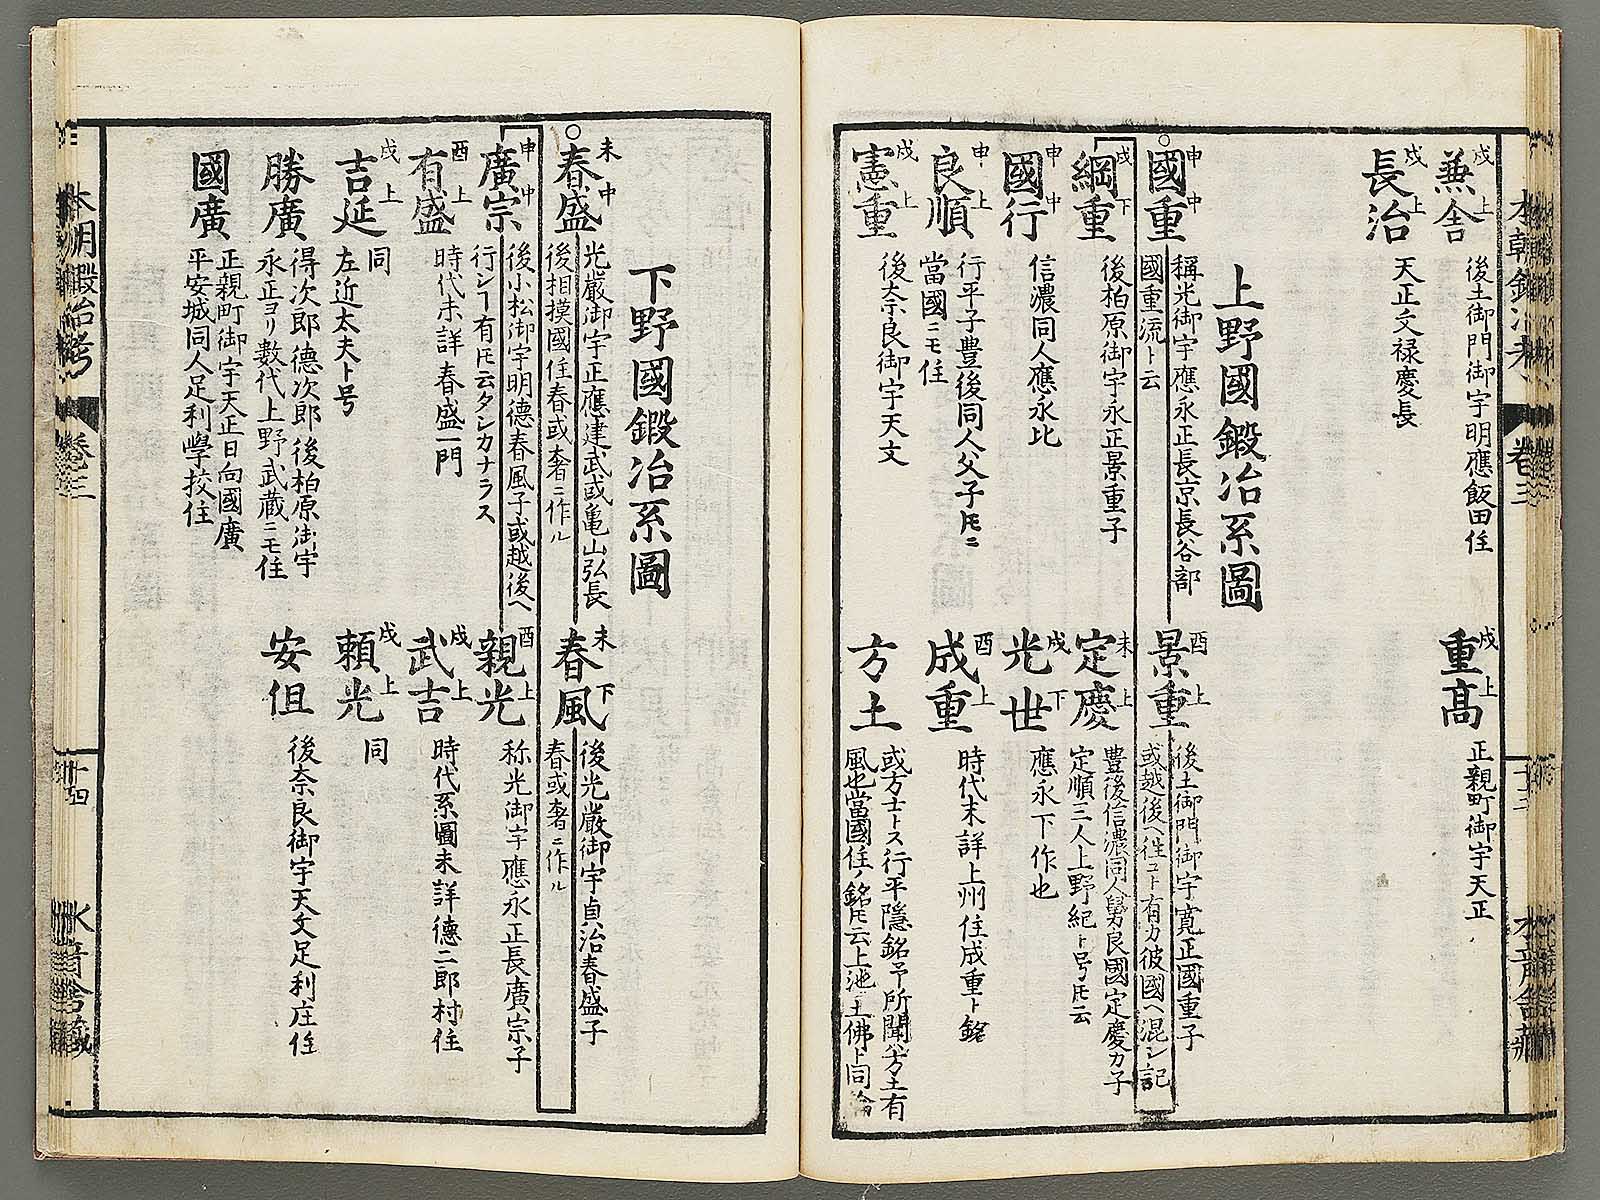 本朝鍛冶考 卷三 十三 水音舍藏
兼舍 戌上
後土御門御宇明應飯田住
重髙 戌上
正親町御宇天正
長治 戌上
天正文禄慶長
上野國鍛冶系圖
○國重 申中
稱光御宇應永正長京長谷部
國重流ト云
景重 酉上
後土御門御宇寛正國重子
或越後ヘ住コト有カ彼國ヘ混シ記
綱重 戌下
後柏原御宇永正景重子
定慶 未上
豊後信濃同人舅良國定慶カ子
定順三人上野紀ト号ス𪜈云
國行 申中
信濃同人應永比
光世 戌下
應永下作也
良順 申上
行平子豊後同人父子𪜈ニ
當國ニモ住
成重 酉上
時代未詳上州住成重ト銘
憲重 戌上
後奈良御宇天文
方土
或方士トス行平隱銘予所聞方土有
風也當國住ノ銘𪜈云上池土佛ト同
下野國鍛冶系圖
○春盛 未中
光嚴御宇正應建武或亀山弘長
後相摸國住春或奢ニ作ル
春風 未下
後光嚴御宇貞治春盛子
春或奢ニ作ル
廣宗 申中
後小松御宇明德春風子或越後ヘ
行シ有𪜈云タシカナラス
親光 酉上
称光御宇應永正長廣宗子
有盛 酉上
時代未詳春盛一門
武吉 戌上
時代系圖未詳德二郎村住
吉延 戌上
同
左近太夫ト号
頼光 戌上
同
勝廣
得次郎德次郎後柏原御宇
永正ヨリ數代上野武蔵ニモ住
安但
後奈良御宇天文足利庄住
國廣
正親町御宇天正日向國廣
平安城同人足利學挍住
本朝鍛冶考 卷三 十四 水音舍藏